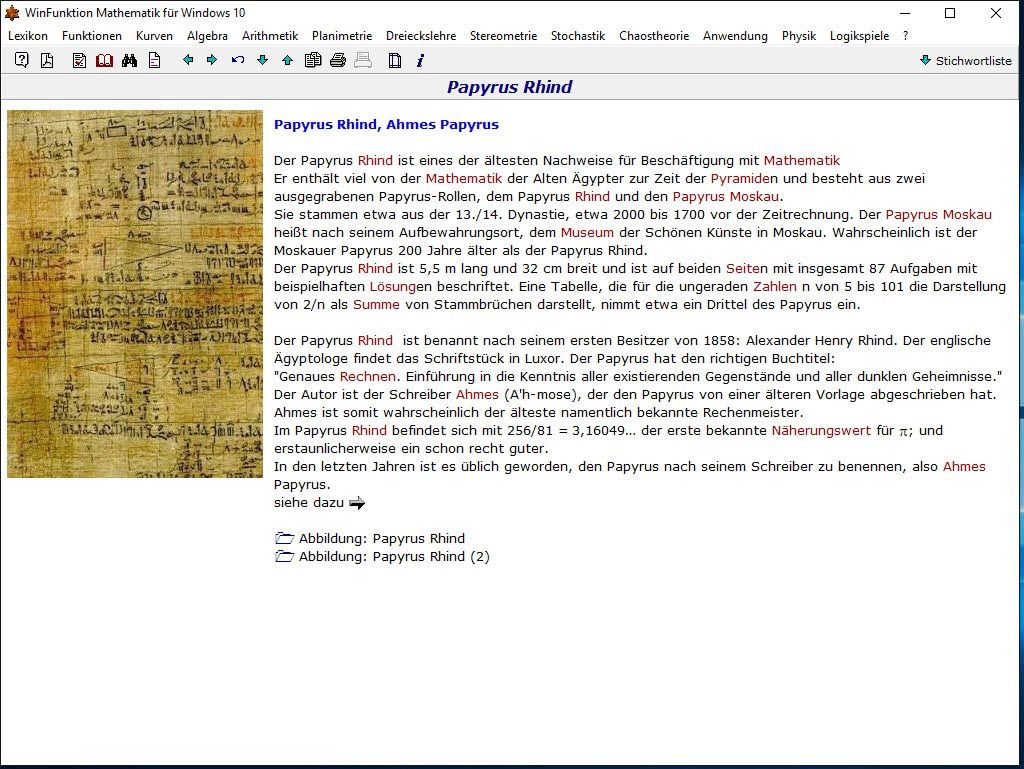 WinFunktion Mathematik für Windows 10
Lexikon Funktionen Kurven Algebra Arithmetik Planimetrie Dreieckslehre Stereometrie Stochastik Chaostheorie Anwendung Physik Logikspiele ?
Stichwortliste
Papyrus Rhind
Papyrus Rhind, Ahmes Papyrus
Der Papyrus Rhind ist eines der ältesten Nachweise für Beschäftigung mit Mathematik
Er enthält viel von der Mathematik der Alten Ägypter zur Zeit der Pyramiden und besteht aus zwei
ausgegrabenen Papyrus-Rollen, dem Papyrus Rhind und den Papyrus Moskau.
Sie stammen etwa aus der 13./14. Dynastie, etwa 2000 bis 1700 vor der Zeitrechnung. Der Papyrus Moskau
heißt nach seinem Aufbewahrungsort, dem Museum der Schönen Künste in Moskau. Wahrscheinlich ist der
Moskauer Papyrus 200 Jahre älter als der Papyrus Rhind.
Der Papyrus Rhind ist 5,5 m lang und 32 cm breit und ist auf beiden Seiten mit insgesamt 87 Aufgaben mit
beispielhaften Lösungen beschriftet. Eine Tabelle, die für die ungeraden Zahlen n von 5 bis 101 die Darstellung
von 2/n als Summe von Stammbrüchen darstellt, nimmt etwa ein Drittel des Papyrus ein.
Der Papyrus Rhind ist benannt nach seinem ersten Besitzer von 1858: Alexander Henry Rhind. Der englische
Ägyptologe findet das Schriftstück in Luxor. Der Papyrus hat den richtigen Buchtitel:
"Genaues Rechnen. Einführung in die Kenntnis aller existierenden Gegenstände und aller dunklen Geheimnisse."
Der Autor ist der Schreiber Ahmes (A'h-mose), der den Papyrus von einer älteren Vorlage abgeschrieben hat.
Ahmes ist somit wahrscheinlich der älteste namentlich bekannte Rechenmeister.
Im Papyrus Rhind befindet sich mit 256/81 = 3,16049... der erste bekannte Näherungswert für π; und
erstaunlicherweise ein schon recht guter.
In den letzten Jahren ist es üblich geworden, den Papyrus nach seinem Schreiber zu benennen, also Ahmes
Papyrus.
siehe dazu
Abbildung: Papyrus Rhind
Abbildung: Papyrus Rhind (2)